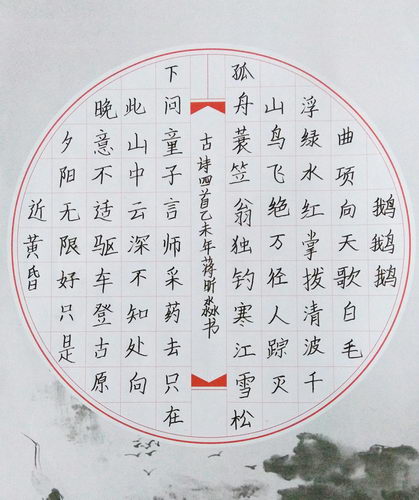 鹅鹅鹅
曲项向天歌白毛
浮绿水红掌拨清波千
山鸟飞绝万径人踪灭
孤舟蓑笠翁独钓寒江雪松
古诗四首乙未年蒋昕淼书
下问童子言师采药去只在
此山中云深不知处向
晚意不适驱车登古原
夕阳无限好只是
近黄昏